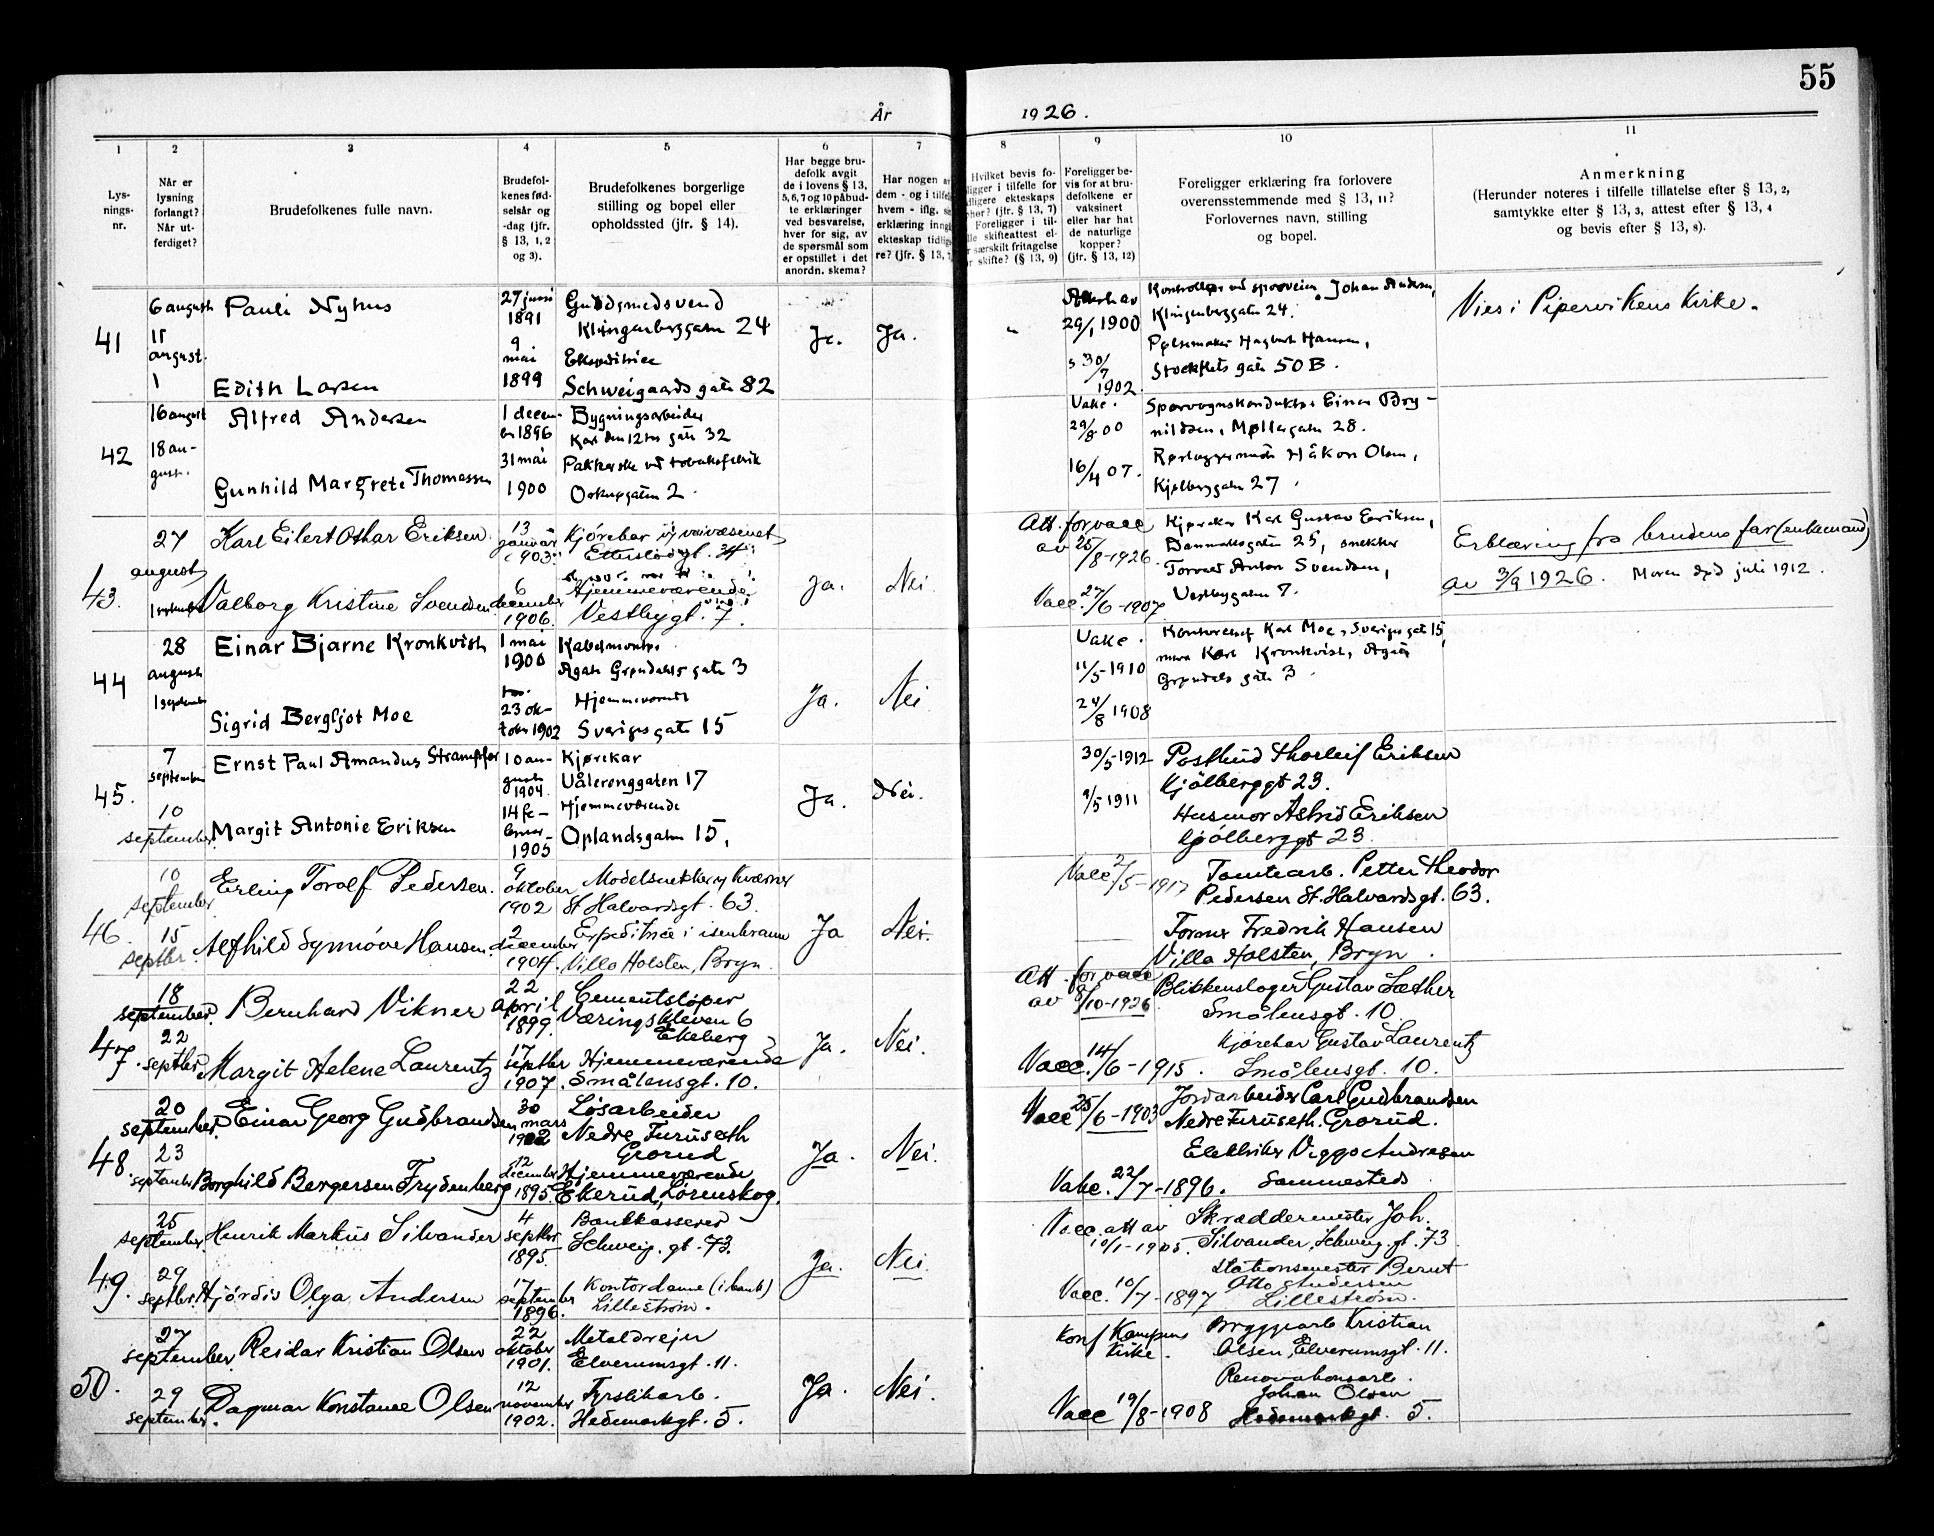 55
År 1926.
1 2 3 4 5 6 7 8 9 10 11
Lys-
nings-
nr.
Når er
lysning
forlangt?
Når ut-
ferdiget?
Brudefolkenes fulle navn.
Brudefol-
kenes fød-
selsår og
-dag (jfr.
§ 13, 1, 2
og 3).
Brudefolkenes borgerlige
stilling og bopel eller
opholdssted (jfr. § 14).
Har begge bru-
defolk avgit
de i lovens § 13,
5, 6, 7 og 10 påbud-
te erklæringer
ved besvarelse,
hver for sig, av
de spørsmål som
er opstillet i det
anordn. skema?
Har nogen
dem - og i
hvem - iflg.
erklæring
ekteskap
re? (jfr. § 13,
Hvilket bevis fo-
ligger i tilfelle for
tidligere ekteskaps
ophør? (jfr. § 13, 7)
Foreligger i til-
skifteattest el-
særskilt fritagelse
skifte? (§ 13, 9)
Foreligger be-
vis for at bru-
defolkene er
vaksinert
eller har hat
de naturlige
kopper?
(jfr. § 13, 12)
Foreligger erklæring fra forlovere
overensstemmende med § 13, 11?
Forlovernes navn, stilling
og bopel.
Anmerkning
(Herunder noteres i tilfelle tillatelse efter § 13, 2,
samtykke efter § 13, 3, attest efter § 13, 4
og bevis efter § 13, 8).
41
6 august
11
august.
Pauli Nyhus
27 juni
1891
Klingenberggaten 24
Edith Larsen
9
mai
1899
Schweigaards gate 82
Ja.
Ja.
29/1 1900
30/7
1902.
Johan Andersen,
Klingenberggaten 24.
Pølsemaker Hagbart Hansen,
Stockflets gate 50 B.
Vies i Pipervikens Kirke.
42
16 august
18 au-
gust.
Alfred Andersen
1 decem-
ber 1896
Bygningsarbeider
Karl den 12tes gate 32
Gunhild Margrete Thomassen
31 mai
1900
Pakkerske ved tobaksfabrik
2
Vakc.
29/8 00
16/4 07.
Sporvognskonduktør Einar Bry-
nildsen, Møllergaten 28.
Rørleggermester Håkon Olsen,
Kjølberggaten 27.
43.
27
august
Karl Eilert Othar Eriksen
13
januar
1903.
Kjørekar
Valborg Kristine Svendsen
6
december
1906.
Hjemmeværende
Vestbygt. 7.
Ja.
Nei.
Att. for vacc
av 25/8-1926.
Vacc. 27/6-1907
Kjørekar Karl Gustav Eriksen,
Danmarksgaten 25, snekker
Torvald Anton Svendsen,
Vestbygaten 7.
Erklæring fra brudens far (enkemand)
av 3/9 1926. Moren død juli 1912.
44
28
august
1 september
Einar Bjarne Kronkvist
1 mai
1900
Kabelmontør
Agate Grøndahls gate 3
Sigrid Bergljot Moe
23 ok-
tober 1902
Hjemmeværende
Sverigesgate 15
Ja.
Nei.
Vakc.
11/5-1910
24/8 1908
Karl Moe, Sverigesgate 15,
murer Karl Kronkvist, Agate
Grøndals gate 3
45.
7
september
10
september.
Ernst Paul Amandus Strampfer
10 au-
gust
1904.
Kjørekar
Vålerenggaten 17
Margit Antonie Eriksen
14 fe-
bruar
1905
Hjemmeværende
Oplandsgaten 15,
Ja.
Nei.
30/5-1912
9/5 1911
Postbud Thorleif Eriksen
Kjølberggt 23.
Husmor Astrid Eriksen
Kjølberggt 23.
46.
10
september.
15
septbr.
Erling Torolf Pedersen.
9
oktober
1902
Modelsnekker v/ Kværner
St Halvardsgt. 63.
Alfhild Synnøve Hansen.
2
december
1904.
Expeditrice i isenkram
Villa Holsten, Bryn.
Ja
Nei.
Vacc 2/5-1917
Tomtearb. Petter Theodor
Pedersen St. Halvardsgt. 63.
Former Fredrik Hansen
Villa Holsten, Bryn.
47.
18
september.
22
septbr.
Bernhard Vikner
22
april
1899.
Cementstøper
Væringskleven 6
Ekeberg
Margit Helene Laurentz
17
septbr
1907.
Hjemmeværende
Smålensgt. 10.
Ja.
Nei.
Att. for vacc
av 8/10-1926
Vacc. 14/6-1915.
Blikkenslager Gustav Sæther
Smålensgt. 10.
Kjørekar Gustav Laurentz
Smålensgt. 10.
48.
20
september.
23
september
Einar Georg Gudbrandsen
30
mars
1902
Løsarbeider
Nedre Furuseth
Grorud
Borghild Bergersen Frydenberg
12
december
1895.
Hjemmeværende
Ekerud, Lørenskog.
Ja.
Nei.
Vacc 25/6-1903
Vakc. 22/7-1896.
Jordarbeider Carl Gudbrandsen
Nedre Furuseth. Grorud.
Elektriker Viggo Andresen
Sammesteds
49.
25
september
29
septbr.
Henrik Markus Silvander
4
septbr.
1895.
Bankkasserer
Schweig. gt. 73.
Hjørdis Olga Andersen
17
september
1896.
Kontordame (i bank)
Lillestrøm.
Ja.
Nei.
Vacc. att av
10/1-1905.
Vacc. 10/7-1897
Skræddermester Joh.
Silvander, Schweig. gt. 73
Stationsmester Bernt
Otto Andersen
Lillestrøm.
50.
27
september
29
september.
Reidar Kristian Olsen
22
oktober
1901.
Metaldreier
Elverumsgt. 11.
Dagmar Konstance Olsen
12
november
1902.
Fyrstikarb.
Hedemarkgt. 5.
Ja.
Nei.
Konf Kampens
Kirke.
Vacc 19/8-1908
Bryggearb Kristian
Olsen, Elverumsgt. 11.
Renovationsarb.
Johan Olsen
Hedemarkgt. 5.